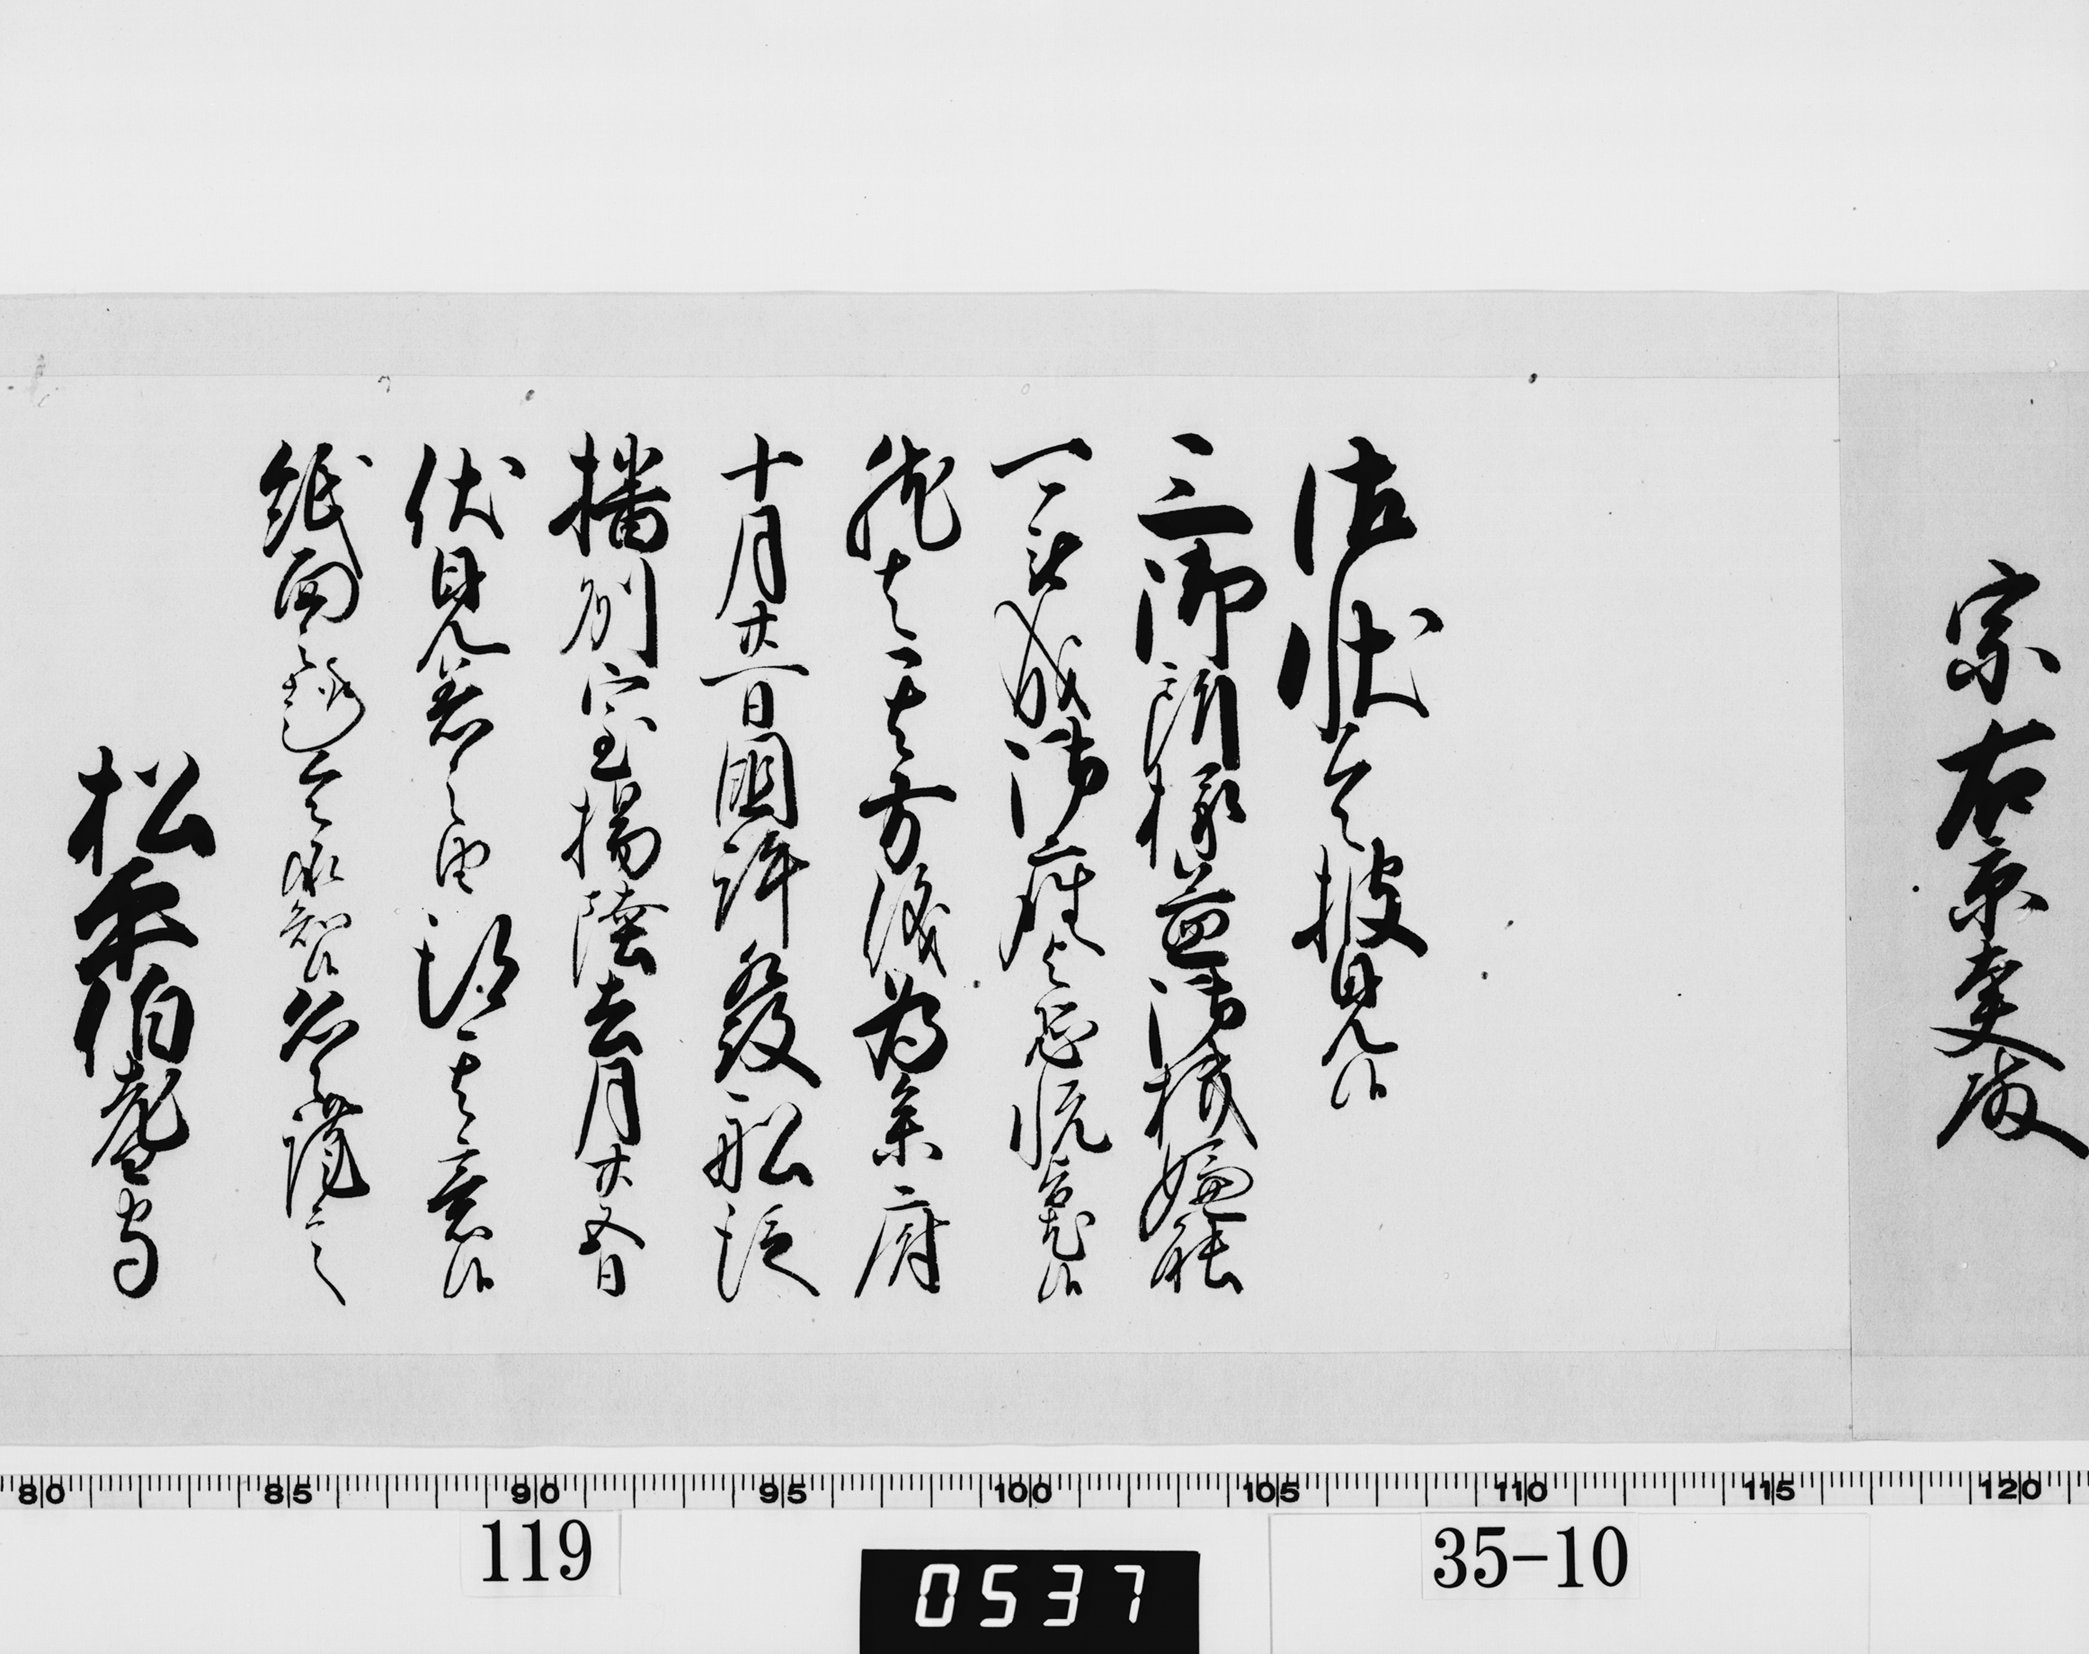 宗右京大夫殿
御状令披見候
三御所様益御機嫌能
被成御座之旨恐悦旨尤候
然者其方儀為参府
十月廿一日国許発船従
播州室揚陸去月廿五日
伏見着之由得其意候
紙面之趣令承知候恐々謹言
松平伯耆守
80 85 90 95 100 105 110 115 120
119
0537
35-10